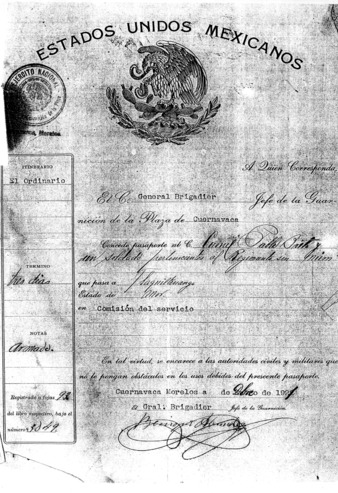 ESTADOS UNIDOS MEXICANOS
EJERCITO NACIONAL
Morelos.
ITINERARIO
El Ordinario
TERMINO
tres dias
NOTAS
Armado.
Registrado a fojas 92
del libro respectivo, bajo el
número 3049
A Quien Corresponda,
El C. General Brigadier Jefe de la Guar-
nición de la Plaza de Cuernavaca
Concede pasaporte al C.
un soldado al Regimiento
que pasa a
Estado de Mor.
en Comisión del servicio
En tal virtud, se encarece a las autoridades civiles y militares que
no le pongan obstáculos en los usos debidos del presente pasaporte.
Cuernavaca Morelos a de de 19
Gral. Brigadier Jefe de la Guarnición.